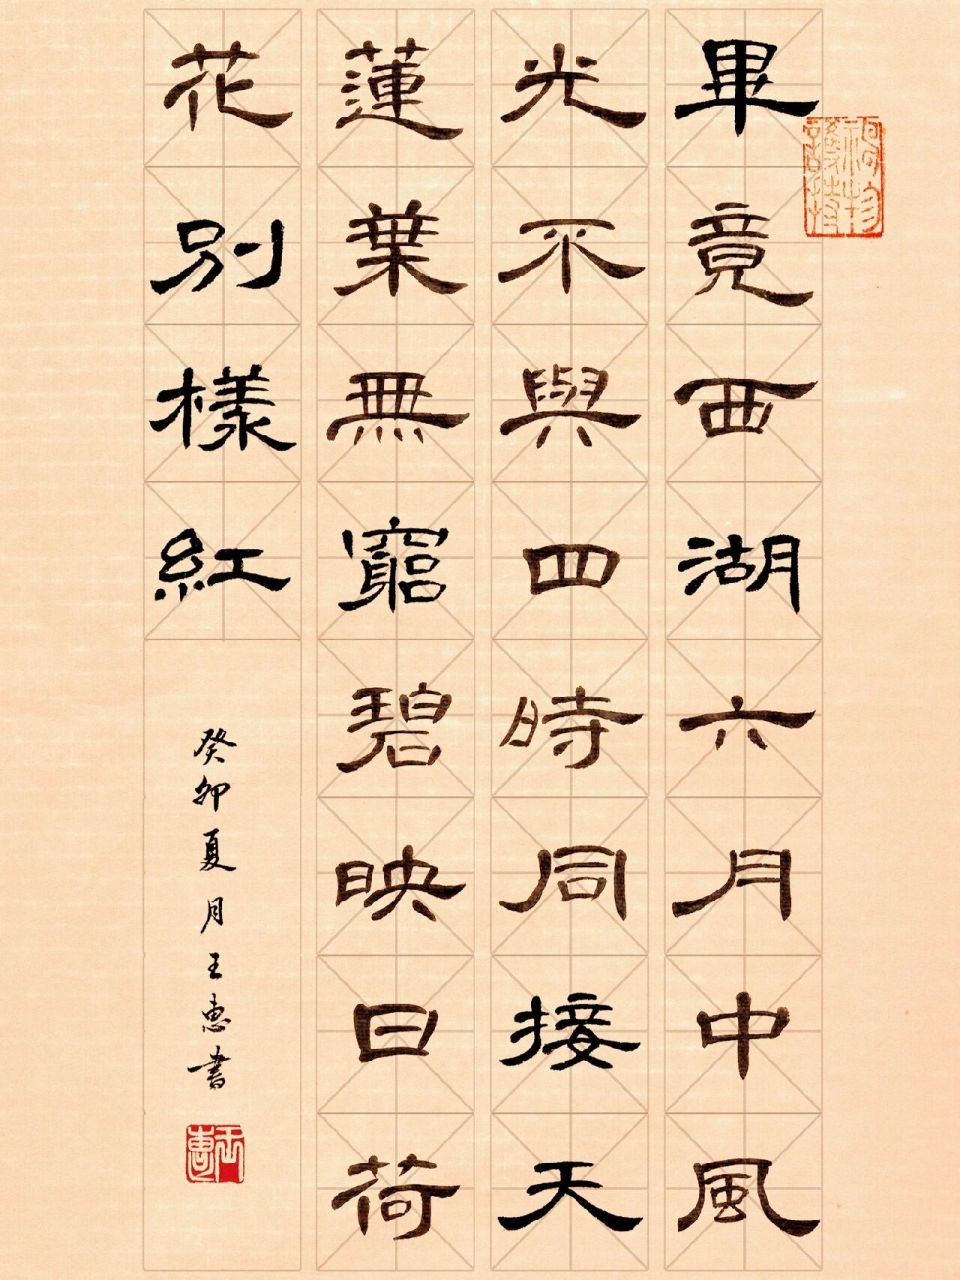 畢竟西湖六月中風
光不與四時同接天
蓮葉無窮碧映日荷
花別樣紅
癸卯夏月王惠書
王惠